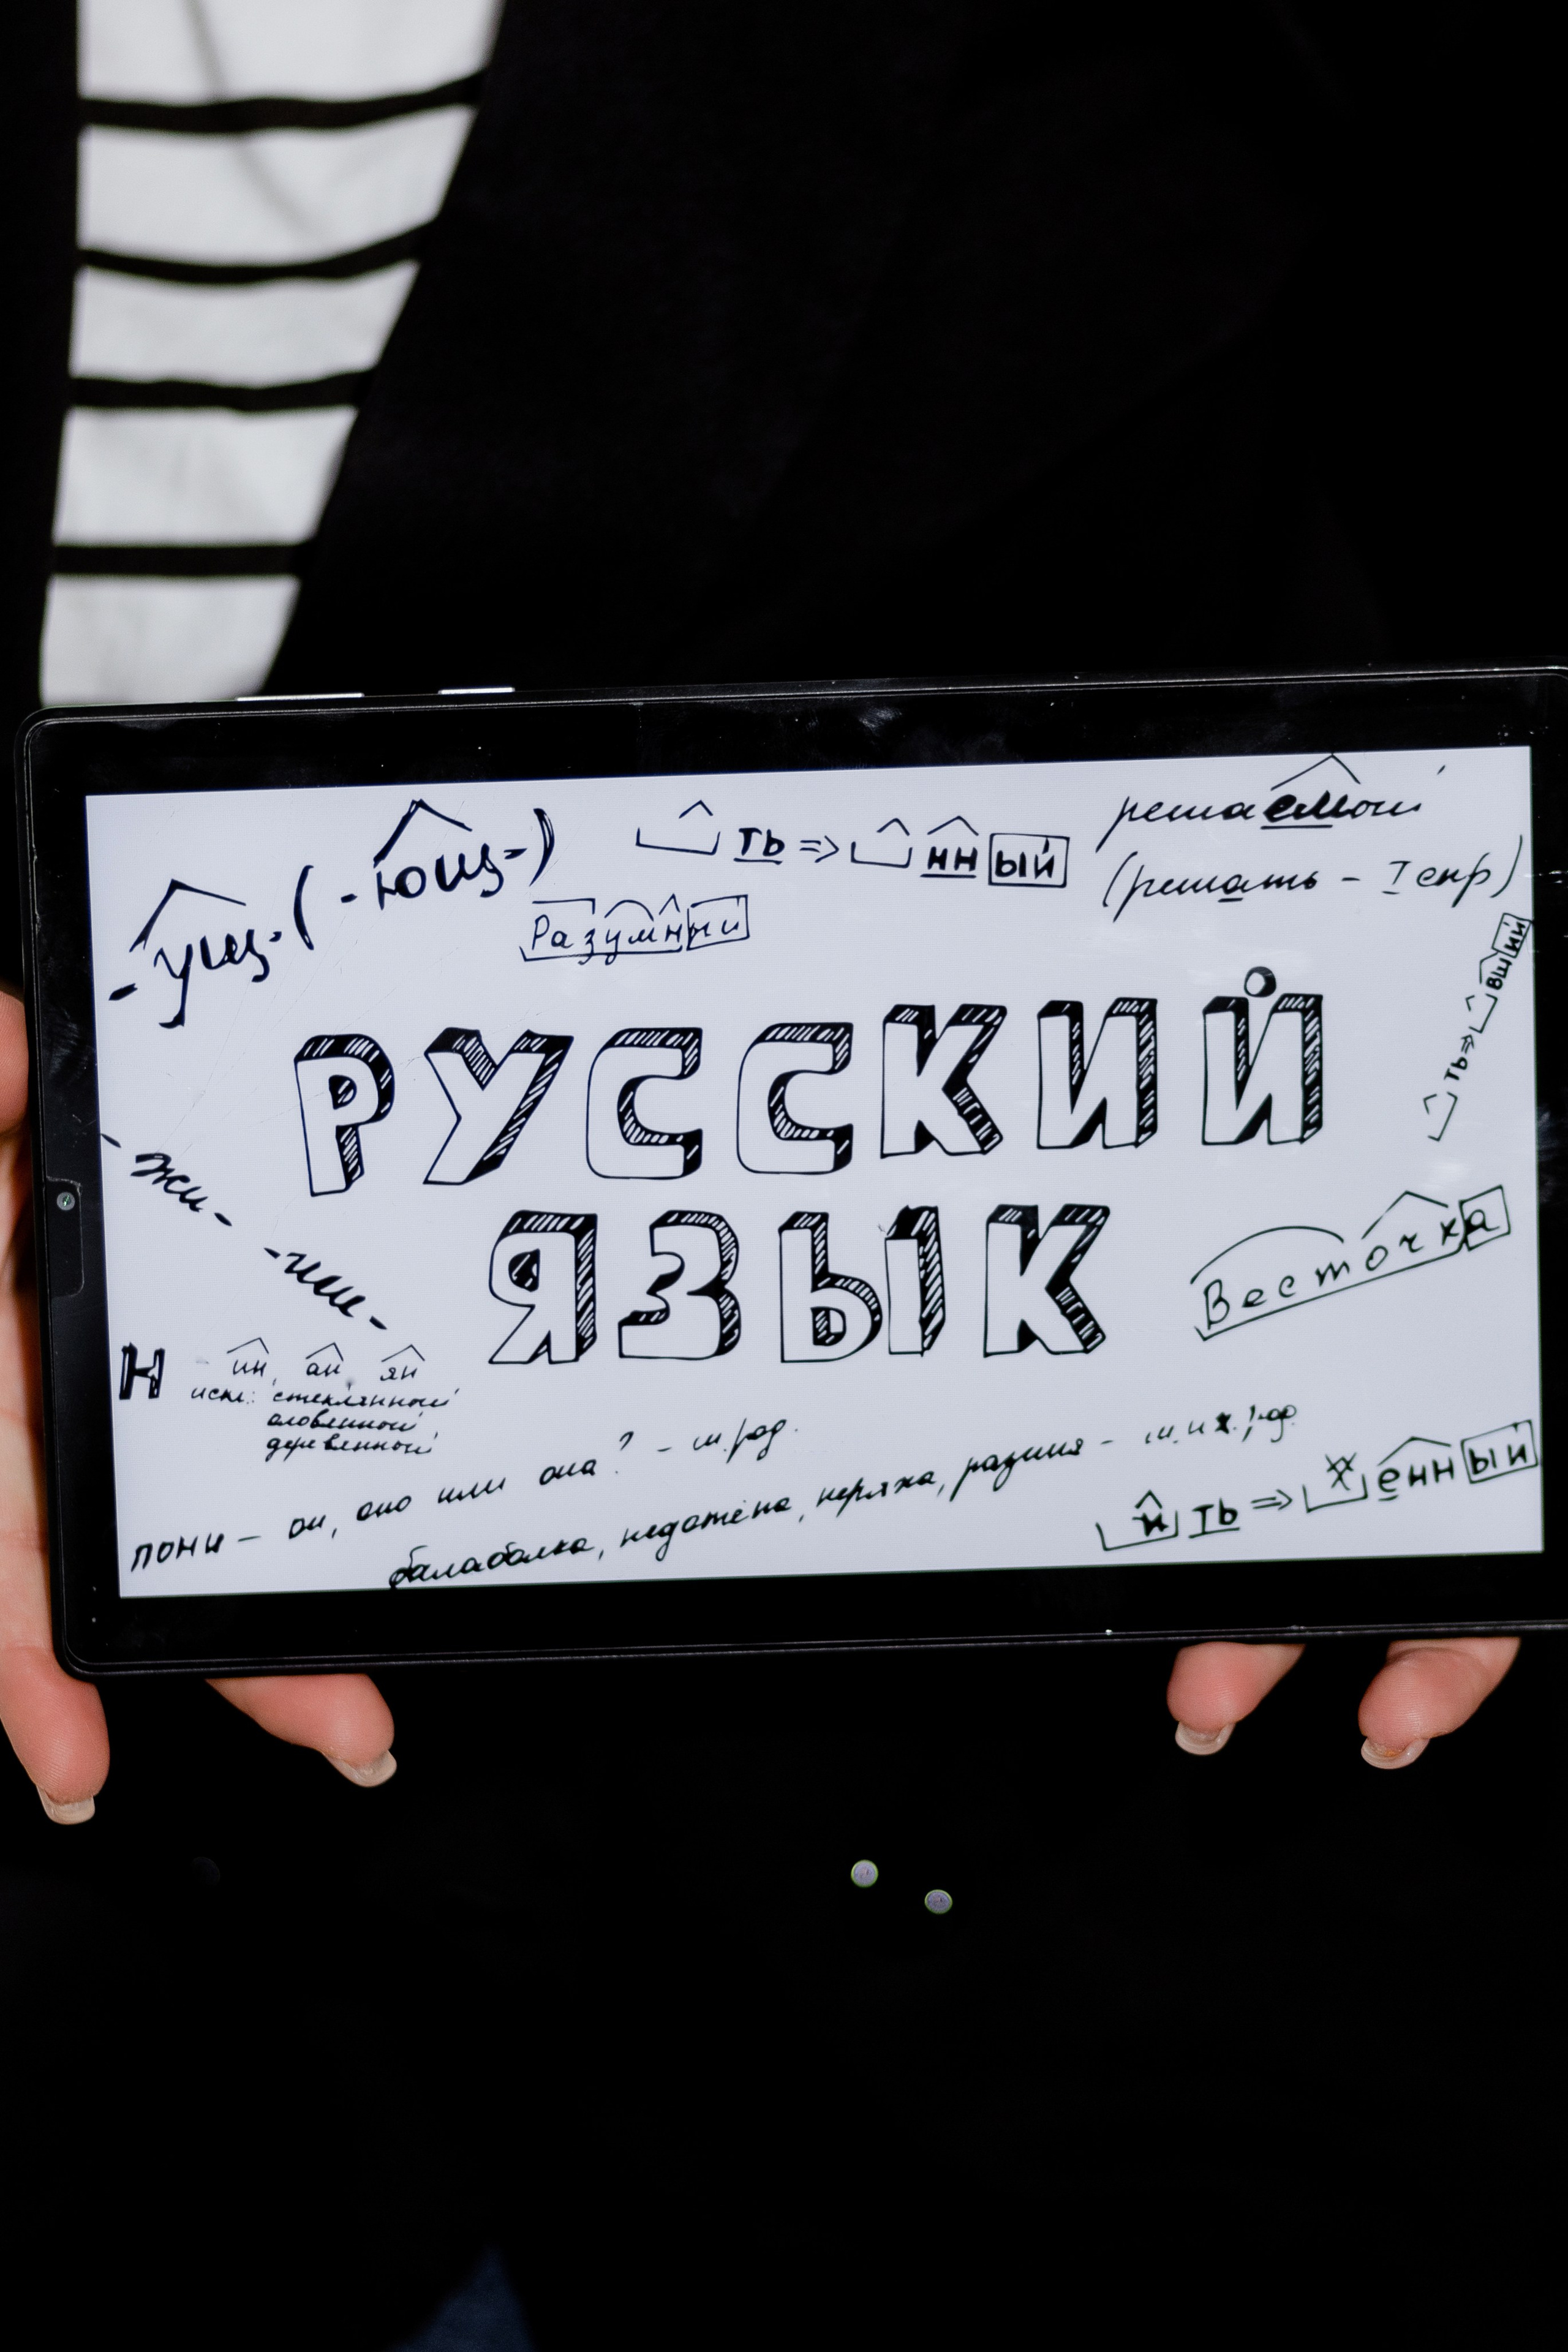 -ущ- (-ющ-)
ть => нн ый
решаемый
(решать - I спр)
Разумный
ть => вш ий
РУССКИЙ
ЯЗЫК
- жи -
- ши -
Весточка
Н - ин, ан, ян
искл: стеклянный
оловянный
деревянный
пони - он, оно или она? - м. род.
балаболка, недотёпа, неряха, разиня - м. и ж. род.
и ть => енн ый